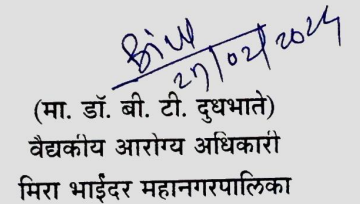 27/02/2024
(मा. डॉ. बी. टी. दुधभाते)
वैद्यकीय आरोग्य अधिकारी
मिरा भाईंदर महानगरपालिका